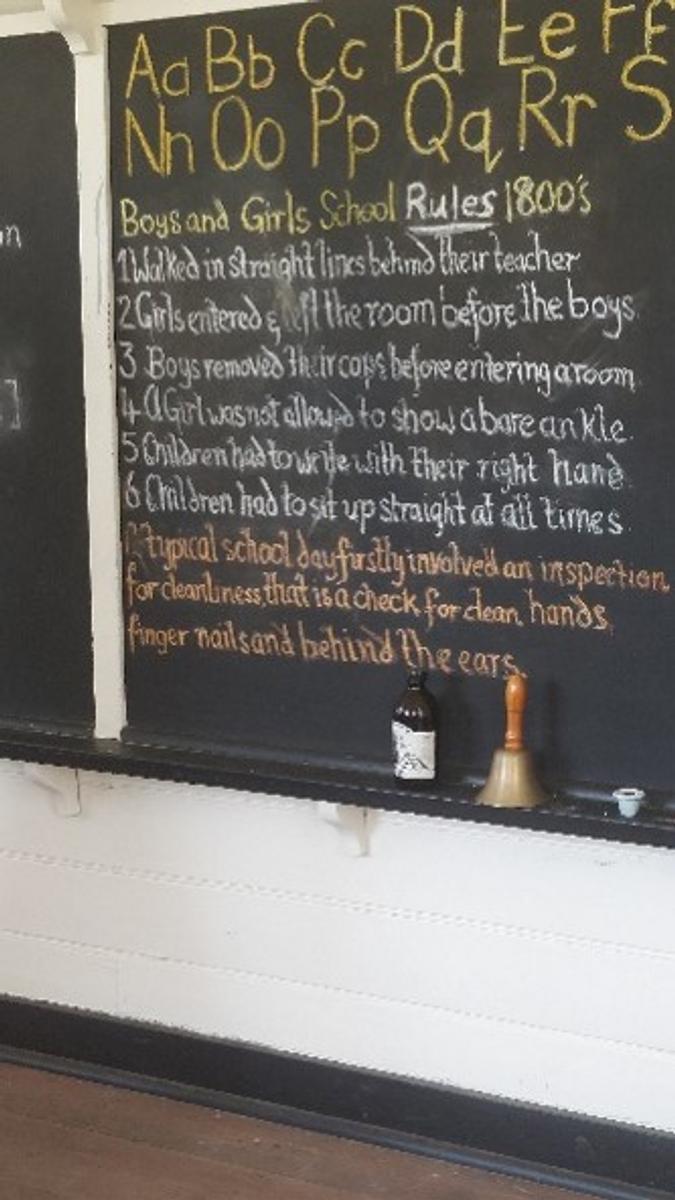 Aa Bb Cc Dd Ee Ff
Nn Oo Pp Qq Rr S
Boys and Girls School Rules 1800's
1 Walked in straight lines behind their teacher
2 Girls entered & left the room before the boys.
3 Boys removed their caps before entering a room
4 A Girl was not allowed to show a bare ankle.
5 Children had to write with their right hand
6 Children had to sit up straight at all times.
A typical school day firstly involved an inspection
for cleanliness, that is a check for clean hands,
finger nails and behind the ears.